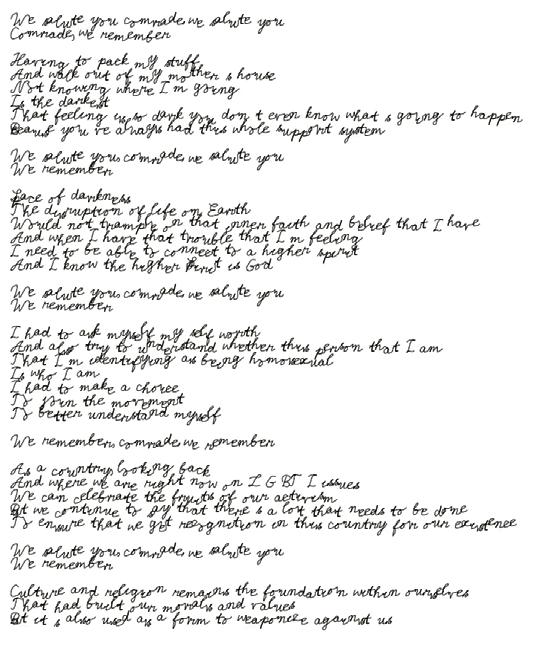 We salute you, comrade, we salute you
Comrade, we remember
Having to pack my stuff
And walk out of my mother s house
Not knowing where I m going
Is the darkest
That feeling is so dark you don t even know what s going to happen
you ve always had this whole support system
We salute you, comrade, we salute you
We remember
Face of darkness
The disruption of life on Earth
Would not trample on that inner faith and belief that I have
And when I have that trouble that I m feeling
I need to be able to connect to a higher spirit
And I know the higher is God
We salute you, comrade, we salute you
We remember
I had to ask myself my self worth
And also try to understand whether this person that I am
That I m identifying as being homosexual
Is who I am
I had to make a choice
To join the movement
To better understand myself
We remember, comrade, we remember
As a country looking back
And where we are right now on L G BT I issues
We can celebrate the fruits of our activism
But we continue to say that there s a lot that needs to be done
To ensure that we get recognition in this country for our existence
We salute you, comrade, we salute you
We remember
Culture and religion remains the foundation within ourselves
That had built our morals and values
But it s also used as a form to weaponize against us